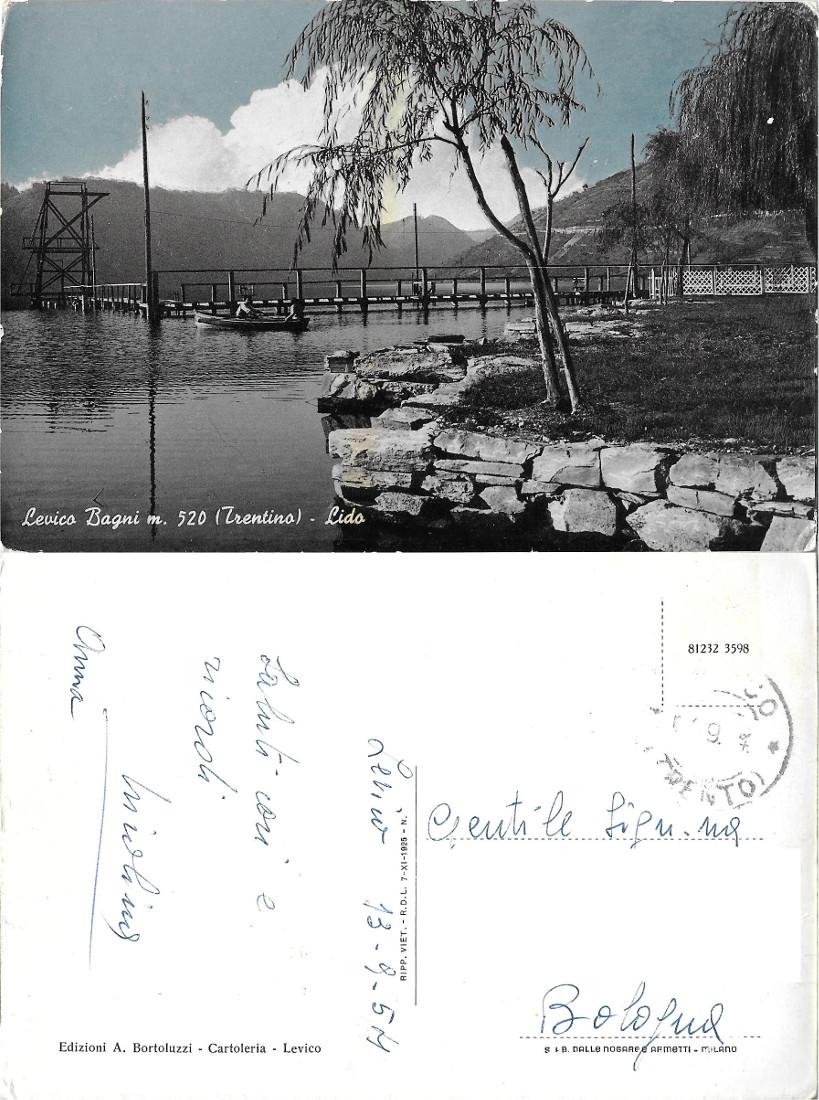 Levico Bagni m. 520 (Trentino) - Lido
81232 3598
Levico 13-9-54
Saluti cari e
ricordi
Anna
Gentile Sign.na
Bologna
RIPP. VIET. - R.D.L. 7-XI-1925 - N.
Edizioni A. Bortoluzzi - Cartoleria - Levico
S & B. DALLE NOGARE E ARMETTI - MILANO